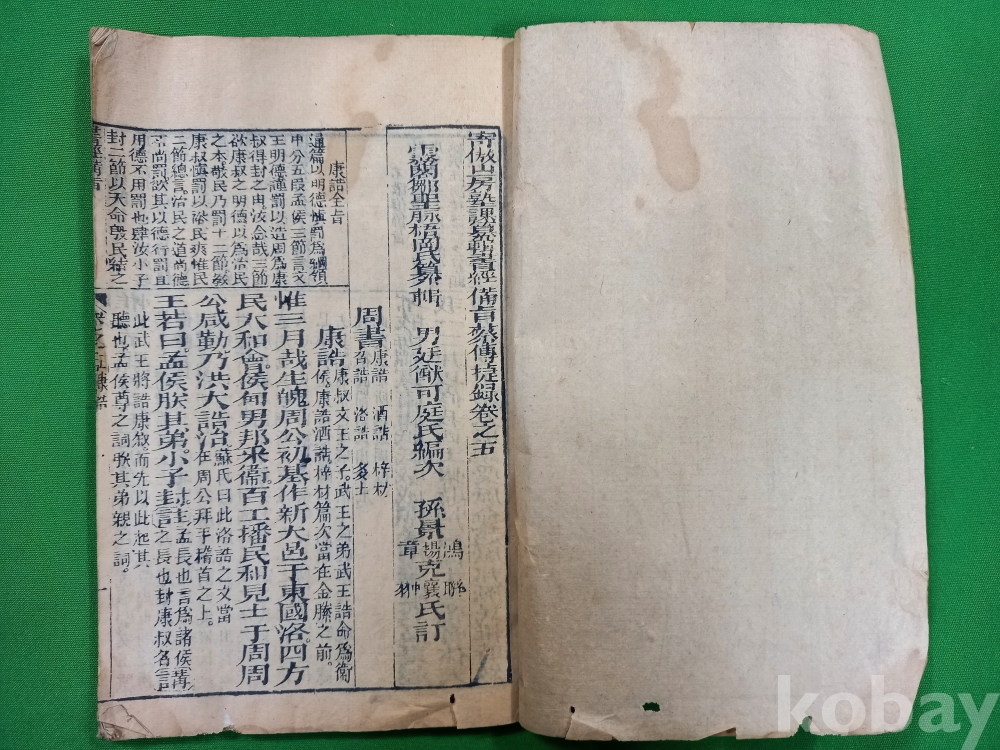 寄傲山房塾課纂輯書經備旨蔡傳捷錄卷之五
鄒聖脉梧岡氏纂輯 男廷猷可庭氏編次 孫景
鴻
揚克襄氏訂
章
周書
康誥 酒誥 梓材
召誥 洛誥 多士
康誥
康叔文王之子武王之弟武王誥命爲衛
侯。康誥酒誥梓材篇次當在金縢之前。
惟三月哉生魄周公初基作新大邑于東國洛四方
民大和會侯甸男邦采衛百工播民和見士于周周
公咸勤乃洪大誥治
蘇氏曰此洛誥之文當
在周公拜手稽首之上。
王若曰孟侯朕其弟小子封
孟長也言爲諸侯
之長也封康叔名
此武王將誥康叔而先以此起其
聽也孟侯尊之詞朕其弟親之詞。
康誥全旨
通篇以明德慎罰爲綱領
王明德謹罰以造周爲康
叔得封之由
欲康叔之明德以爲治民
之本敬民乃罰十二節
康叔慎罰以
二節總言治民之道尚德
不尚罰欲其以德行罰且
用德不用罰也肆汝小子
封二節以天命殷民
書經備旨
kobay